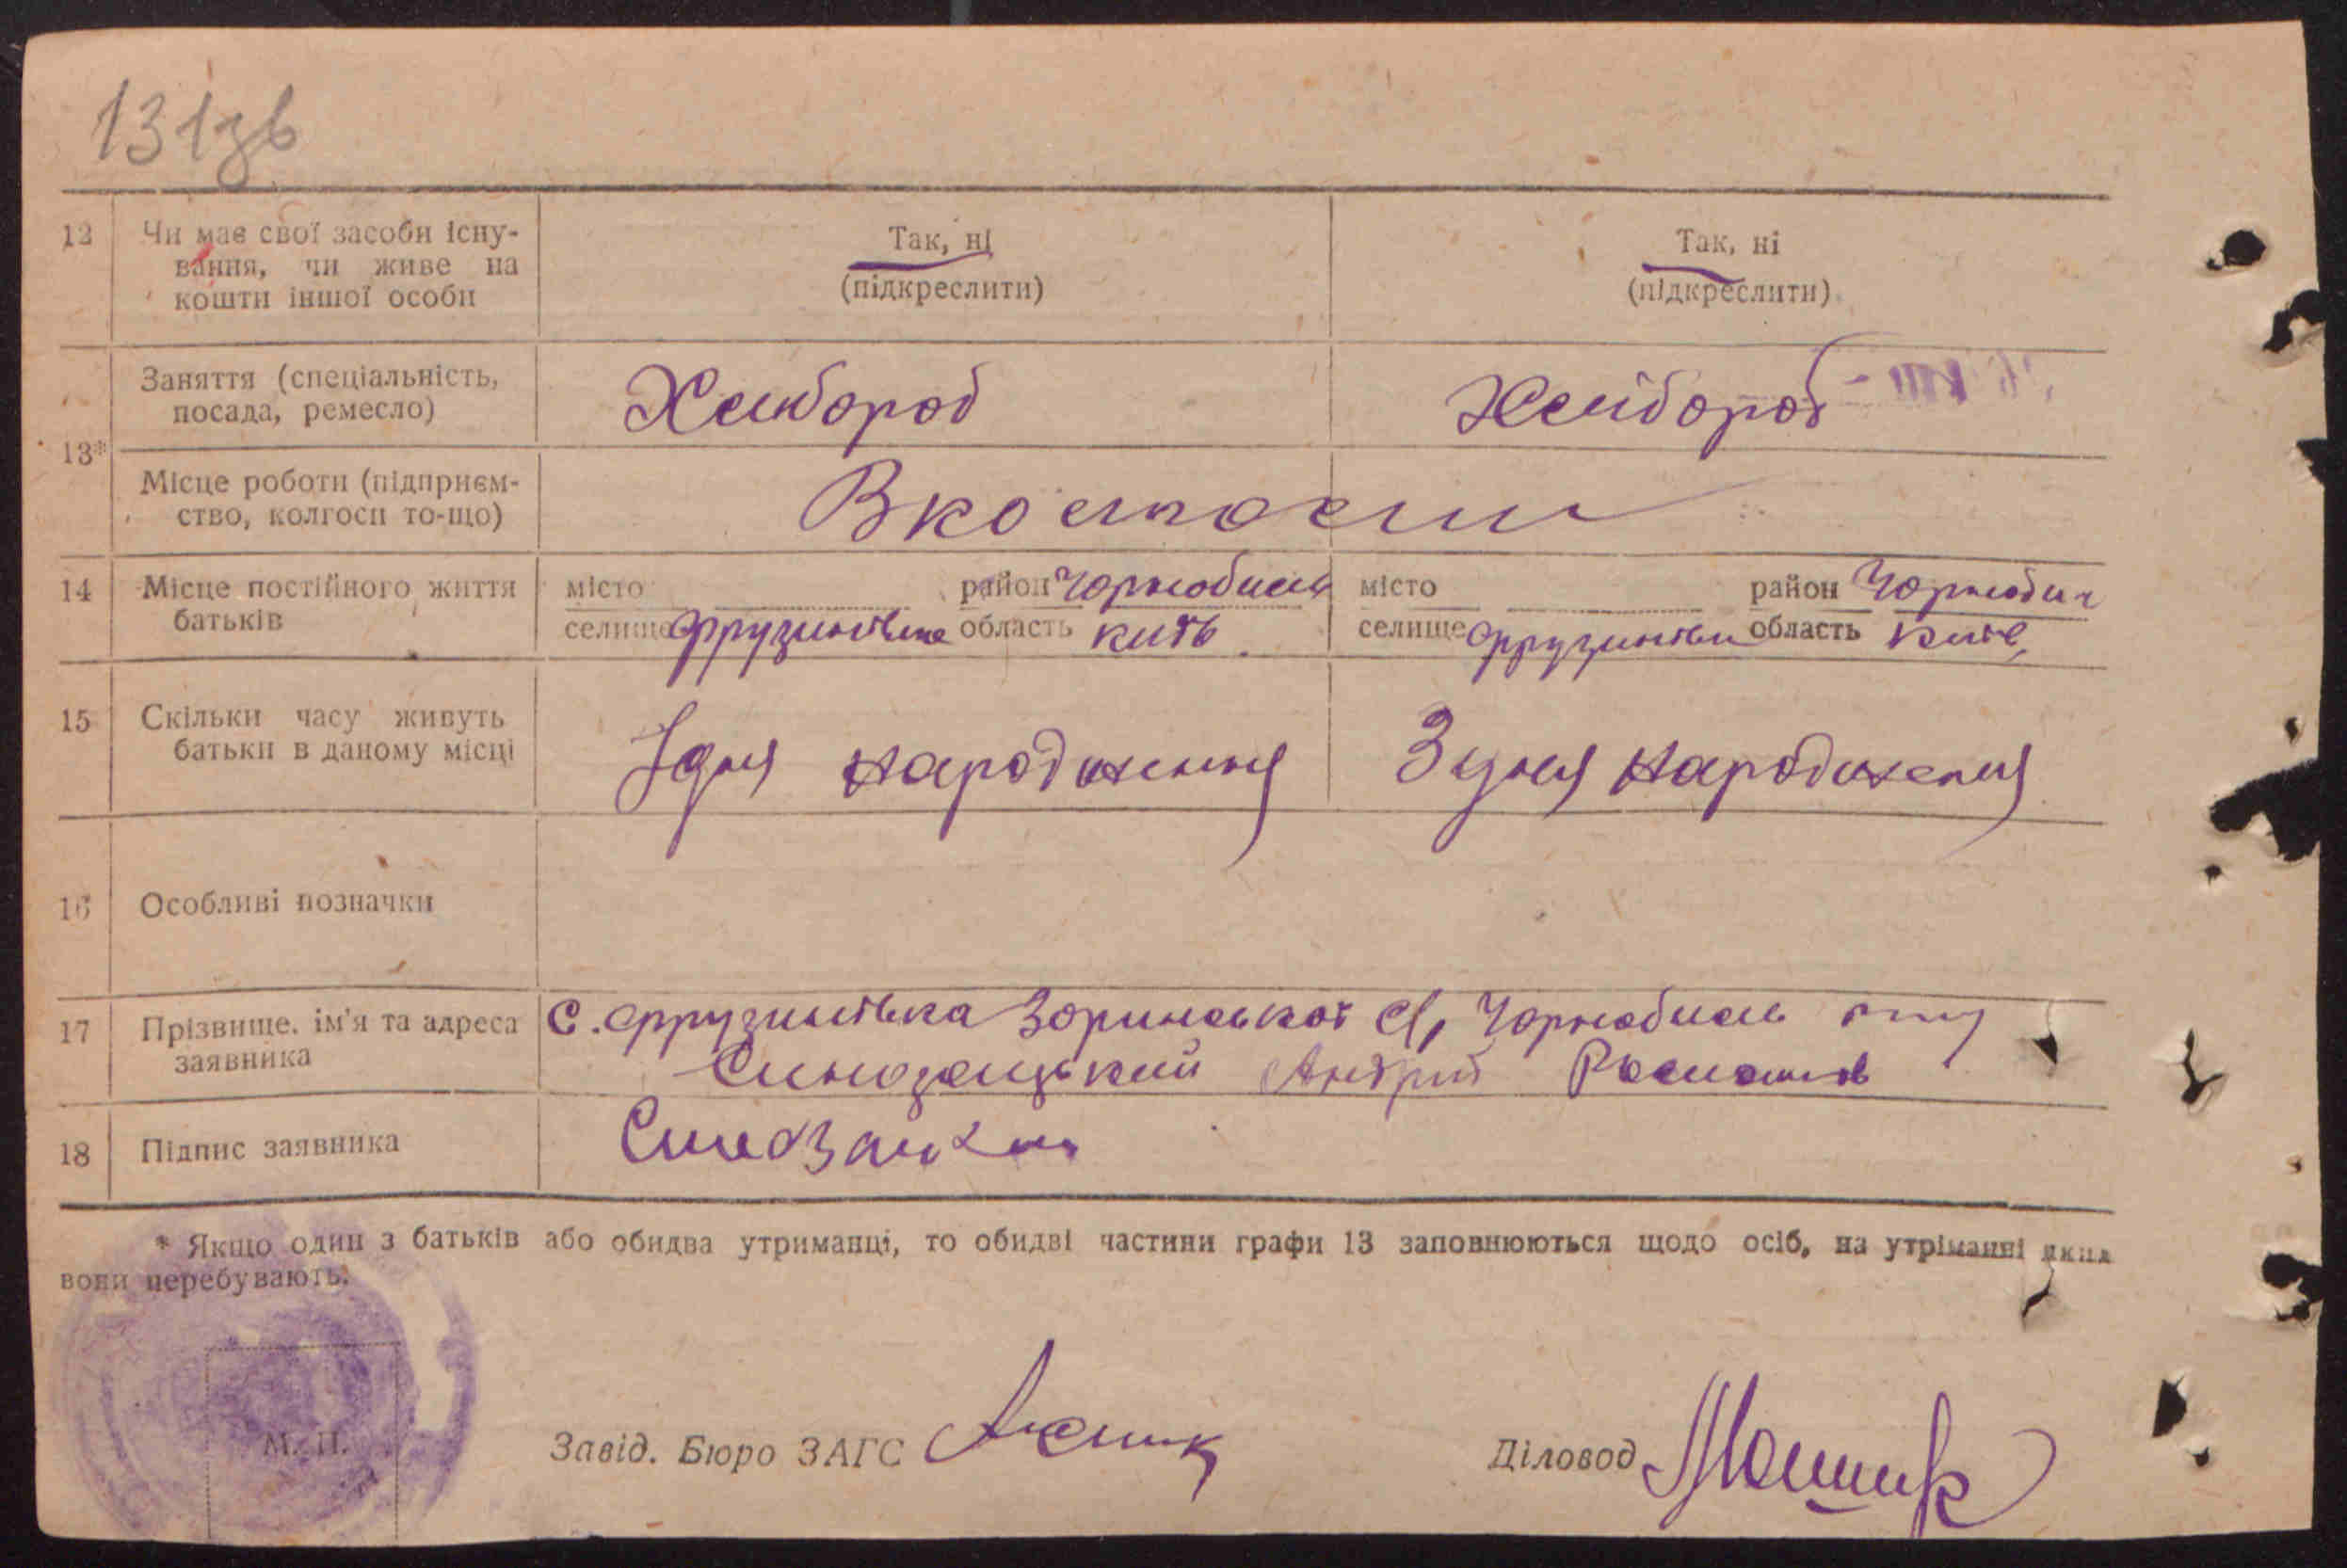 131зв
12 Чи має свої засоби існу-
вання, чи живе на
кошти іншої особи
Так, ні
(підкреслити)
Так, ні
(підкреслити)
13*
Заняття (спеціальність,
посада, ремесло)
Хлібороб
Хлібороб
Місце роботи (підприєм-
ство, колгосп то-що)
В колгоспи
14 Місце постійного життя
батьків
місто район Чорнобиль
селище Фрузинівка область Київ
місто район Чорнобил
селище Фрузинівки область Київ
15 Скільки часу живуть
батьки в даному місці
З дня народження
З дня народження
16 Особливі позначки
17 Прізвище, ім'я та адреса
заявника
С. Фрузинівка Зоринської С/р Чорнобиль
Андрій
18 Підпис заявника
* Якщо один з батьків або обидва утриманці, то обидві частини графи 13 заповнюються щодо осіб, на утріманні яких
вони перебувають.
М. П.
Завід. Бюро ЗАГС
Діловод